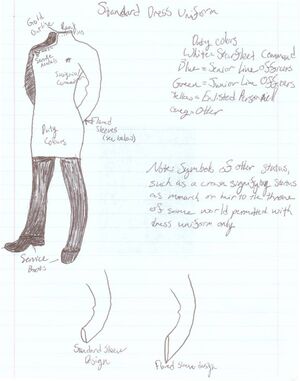 Standard Dress Uniform
Gold
Outline
Rank
Pins
Duty colors
White = Starfleet Command
Blue = Senior Line Officers
Green = Junior Line Officers
Yellow = Enlisted Personnel
Other
Duty
Colours
Flared
Sleeves
(see below)
Note: Symbols of other status,
such as a crown signifying status
as monarch or heir to the throne
of some world permitted with
dress uniform only
Service
Boots
Standard Sleeve
Design
Flared sleeve design